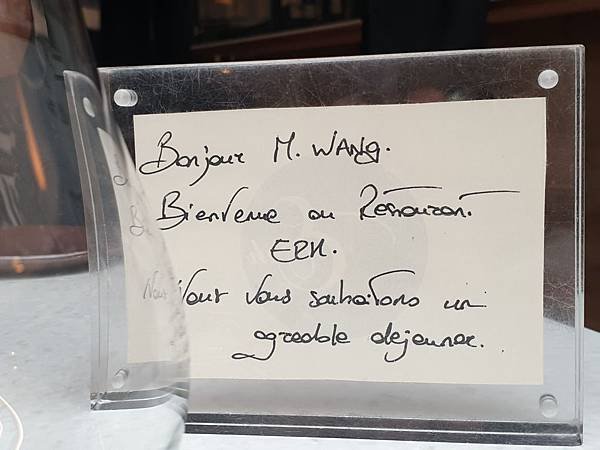 Bonjour M. WANG.
Bienvenue au Restaurant
ERH.
Nous Vous souhaitons un
agreable dejeuner.